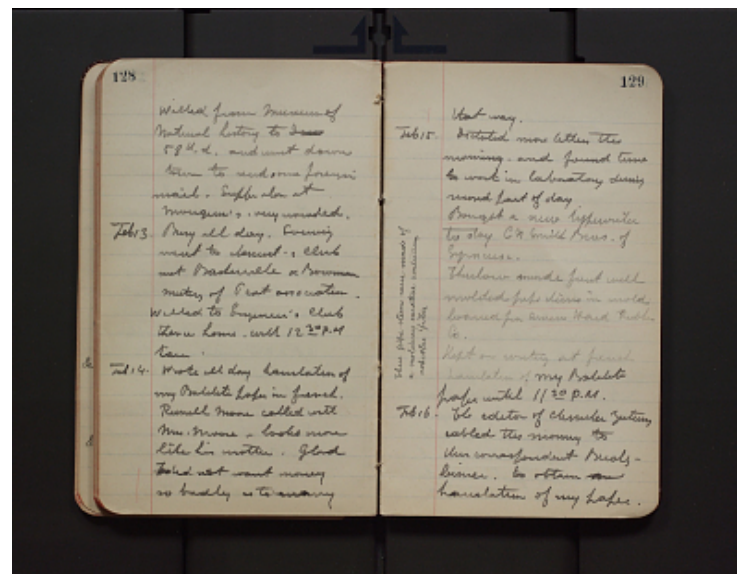 128
Walked from Museum of
Natural History to
58th St. and went down
town to send some foreign
mail. Supper alone at
Mouquin's. very crowded.
Feb 13. Busy all day. Evening
went to Chemist's Club
met Baskerville & Bowman
meeting of Peat association.
Walked to Engineer's Club
thence home. with 12 30 P.M
train.
Feb 14. Wrote all day translation of
my Bakelite paper in french.
Russell Moore called with
Mrs. Moore - looks more
like his mother. Glad
I did not want money
so badly as to marry
129
that way.
Feb 15. Dictated more letters this
morning. and found time
to work in laboratory during
second part of day
Bought a new typewriter
to day. of Guild Bros. of
Syracuse.
Thurlow made first well
molded pipe stems in molds
loaned from Hard Rubber
Co.
Kept on writing at french
translation of my Bakelite
paper until 11 30 P.M.
Feb 16. The editor of Chemiker Zeitung
cabled this morning to
his correspondent
to obtain
translation of my paper.
These pipe stems were made of
a molding mixture containing
asbestos fibre